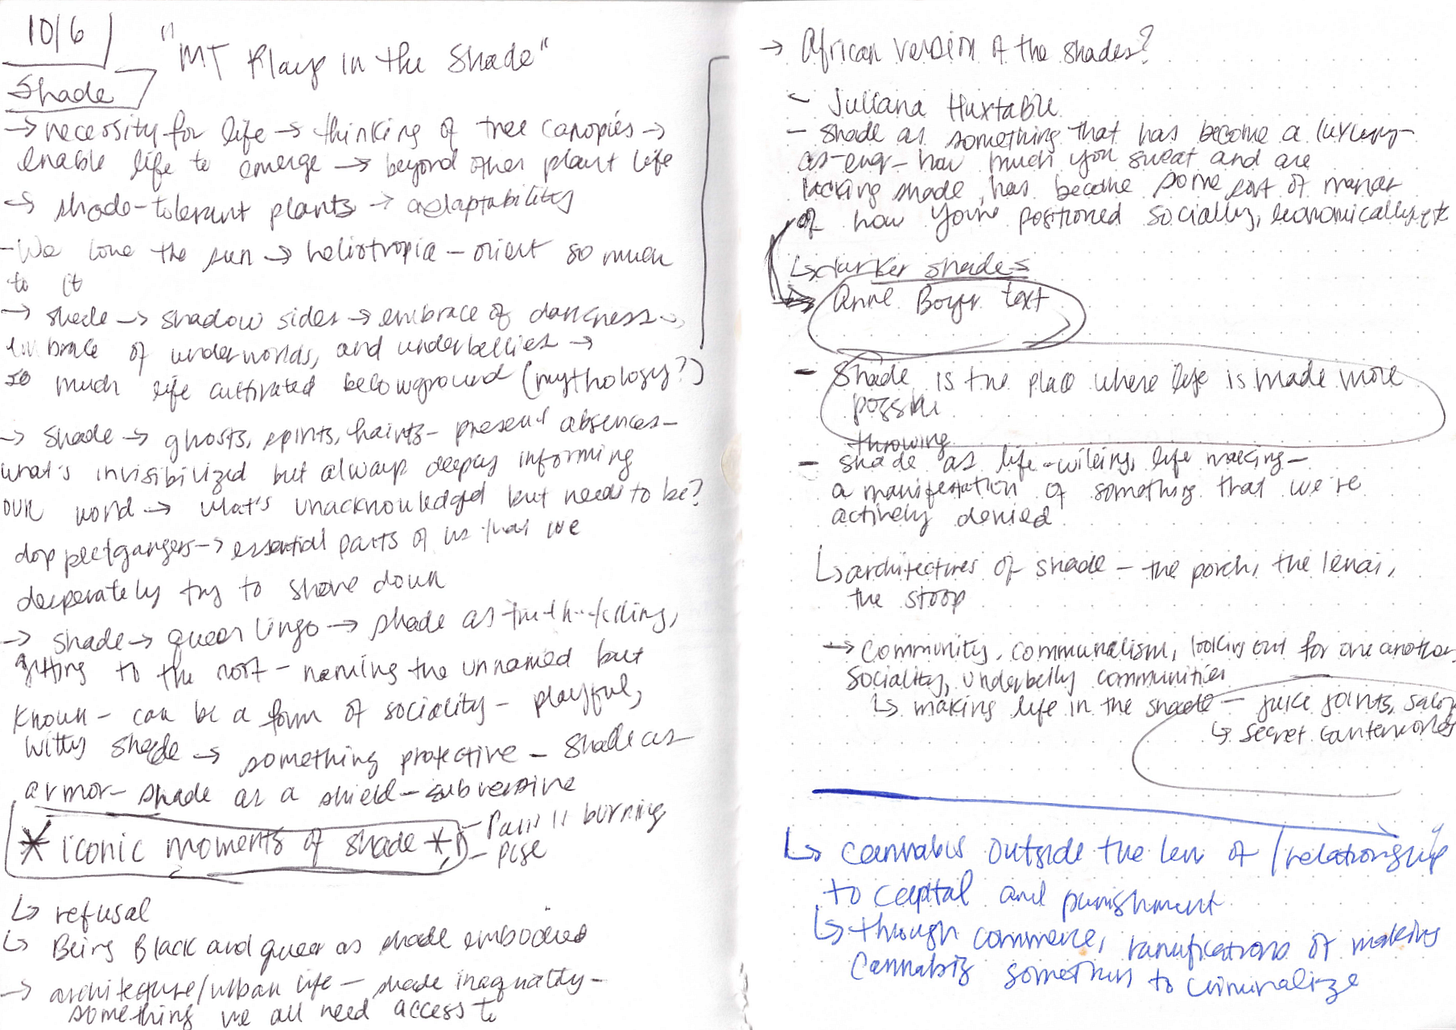 10/6
"MT Plays in the Shade"
Shade
→ necessity for life → thinking of tree canopies →
enable life to emerge → beyond other plant life
→ shade-tolerant plants → adaptability
- We love the sun → heliotropia - orient so much
to it
→ shade → shadow sides → embrace of darkness →
embrace of underworlds, and underbellies →
so much life cultivated belowground (mythology?)
→ shade → ghosts, spirits, haints - present absences -
what's invisibilized but always deeply informing
our world → what's unacknowledged but need to be?
doppelgangers → essential parts of us that we
desperately try to shove down
→ shade → queer lingo → shade as truth-telling,
getting to the root - naming the unnamed but
known - can be a form of sociality - playful,
witty shade → something protective - shade as
armor - shade as a shield - subversive
* iconic moments of shade * - Paris is burning
- Pose
↳ refusal
↳ Being Black and queer as shade embodied
→ architecture/urban life - shade inequality -
something we all need access to
→ African version of the shades?
- Juliana Huxtable
- shade as something that has become a luxury -
how much you sweat and are
lacking shade, has become some sort of marker
of how you're positioned socially, economically, etc
↳ darker shades
→ Anne Boyer text
- Shade is the place where life is made more
possible
throwing
- shade as life-, life making -
a manifestation of something that we're
actively denied
↳ architectures of shade - the porch, the lenai,
the stoop
→ Community, communalism, looking out for one another
sociality, underbelly communities
↳ making life in the shade - juice joints,
↳ secret
↳ cannabis outside the len of / relationship
to capital and punishment
↳ through commerce, ramifications of making
Cannabis something to criminalize